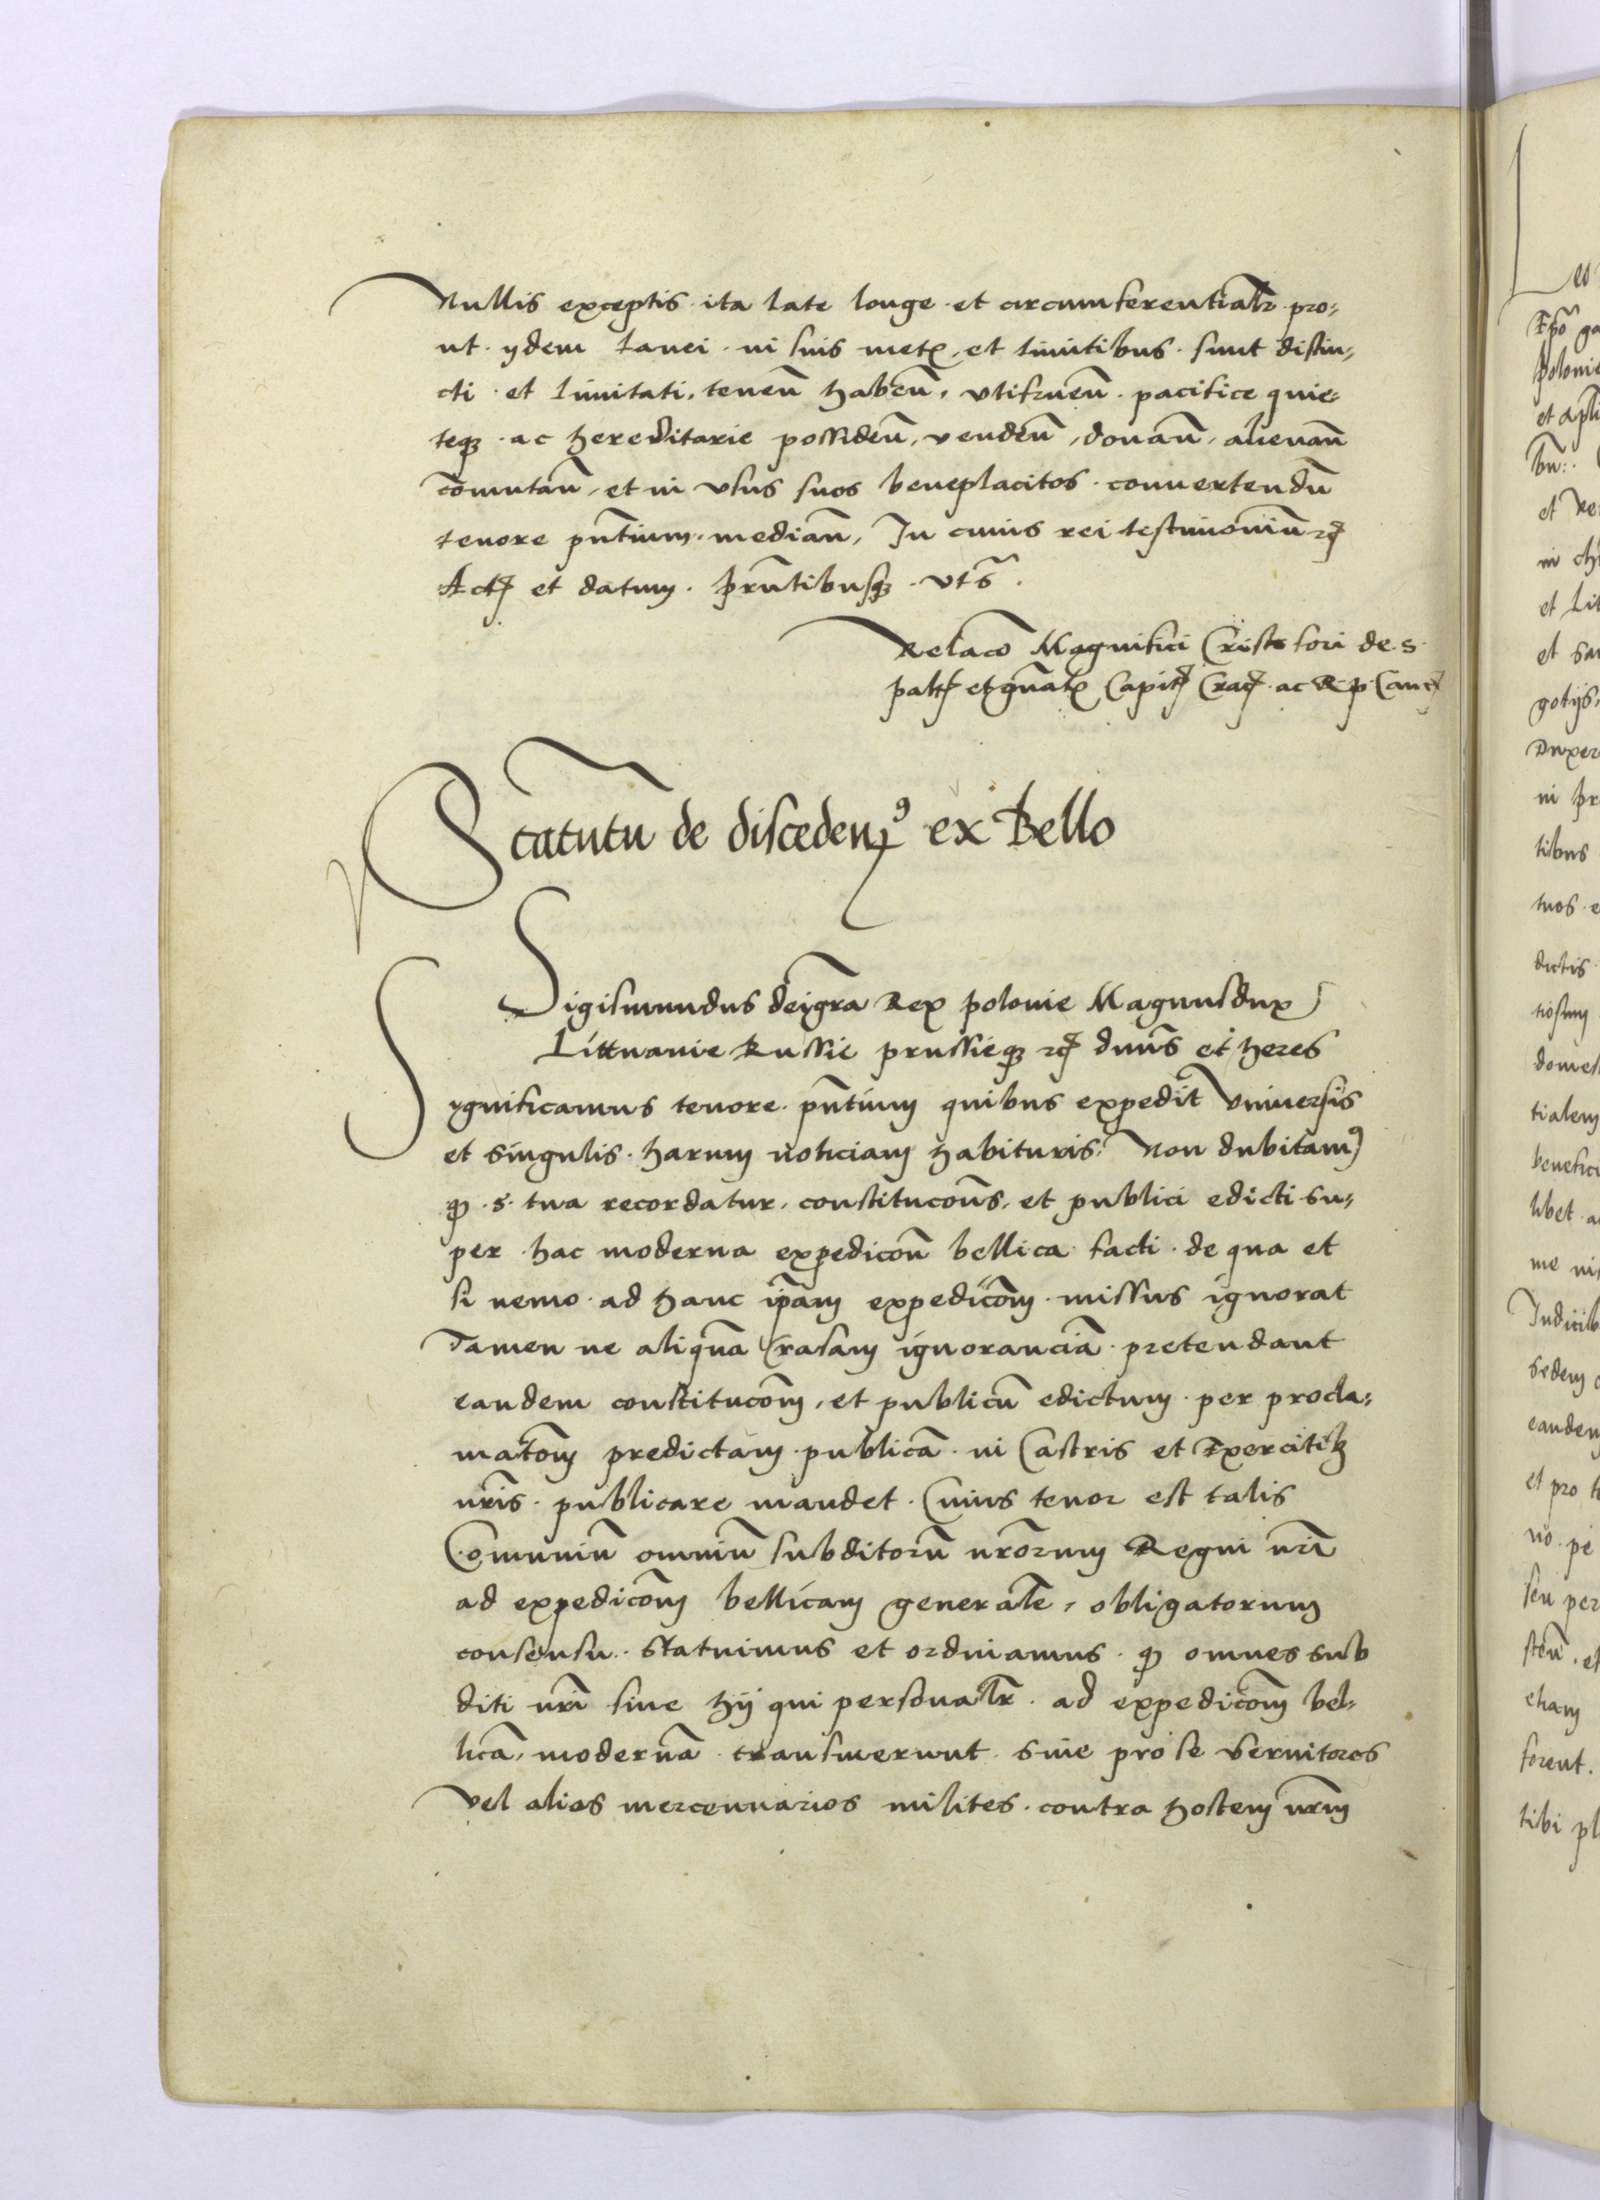 Nullis exceptis ita late longe et circumferentialr pro-
ut ydem lanei in suis metꝭ et limitibus sunt distin-
cti et limitati, teneñ habeñ, utifrueñ pacifice quie-
teqꝫ ac hereditarie possideñ, vendeñ, donañ, alienañ
com̃utañ, et in usus suos beneplacitos convertendũ
tenore pñtium mediañ, In cuius rei testimoniũ ꝛc̃
Act̃ et datum pñtibusqꝫ uts̃.
Relacõ Magnifici Cristofori de S.
palt̃ et gñalꝭ Capit̃ Crac̃ ac R. p. Canc̃
Statutũ de discedentꝰ ex Bello
Sigismundus deigr̃a Rex polonie Magnusdux
Littuanie Russie prussieqꝫ ꝛc̃ dñus et heres
Sygnificamus tenore pñtium quibus expedit Vniversis
et singulis harum noticiam habituris. Non dubitamꝰ
ꝙ s. tua recordatur, constitucoñs, et publici edicti su-
per hac moderna expedicoñ bellica facti de qua et
si nemo ad hanc ip̃am expedicõm missus ignorat
Tamen ne aliquã Crasam ignoranciã pretendant
eandem constitucõm, et publicũ edictum per procla-
matõm predictam publicã in Castris et Exercitibꝫ
nr̃is publicare mandet. Cuius tenor est talis
Com̃uniũ omniũ subditorũ nr̃orum Regni nr̃i
ad expedicõm bellicam generalẽ, obligatorum
consensu statuimus et ordinamus ꝙ omnes sub
diti nr̃i sive hij qui personalr̃ ad expedicõm bel-
licã, modernã transiverunt sive pro se servitores
vel alios mercennarios milites contra hostem nr̃m